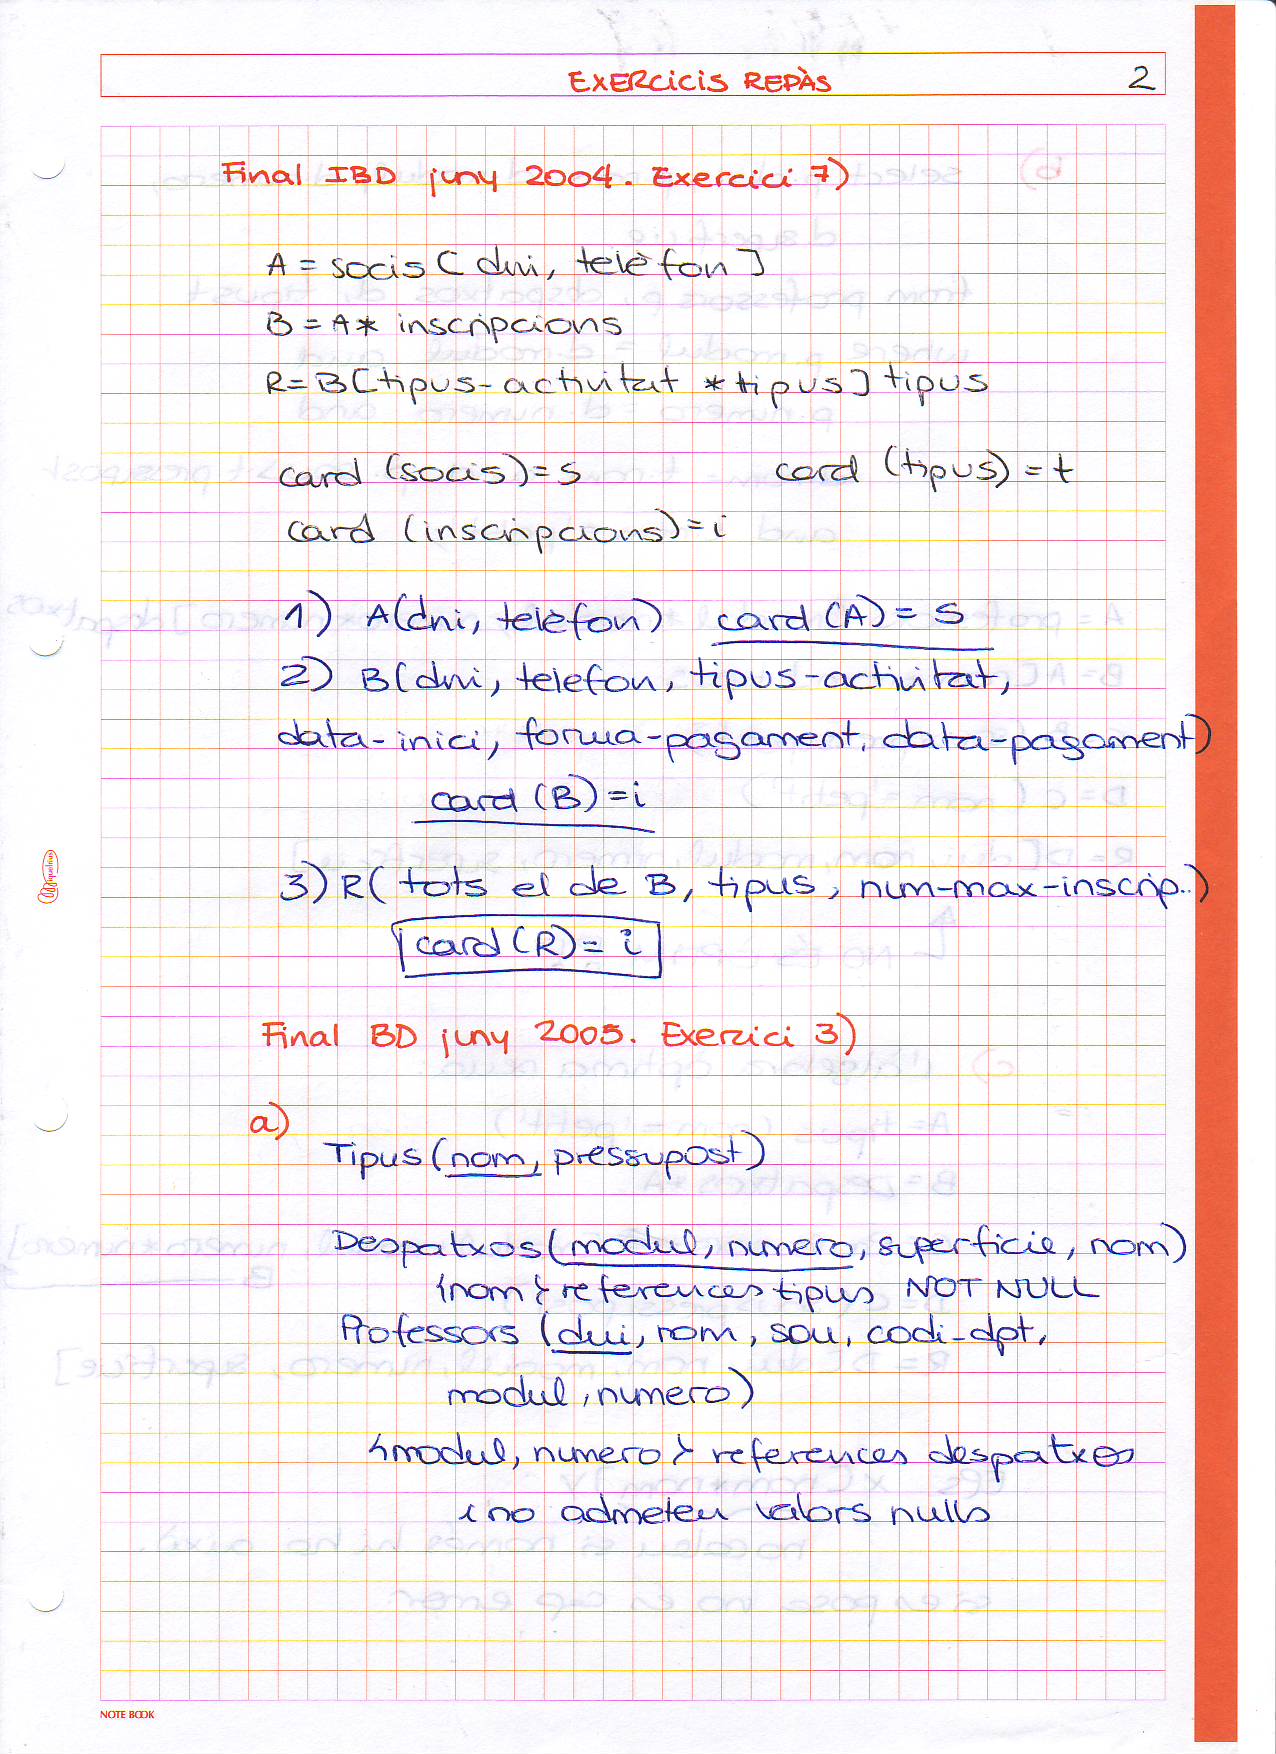 EXERCICIS REPÀS 2
Final IBD juny 2004. Exercici 7)
A = socis [ dni, telèfon ]
B = A * inscripcions
R = B [ tipus-activitat * tipus ] tipus
card (socis) = s card (tipus) = t
card (inscripcions) = i
1) A(dni, telèfon) card (A) = s
2) B(dni, telefon, tipus-activitat,
data-inici, forma-pagament, data-pagament)
card (B) = i
3) R( tots el de B, tipus, num-max-inscrip..)
card (R) = i
Final BD juny 2005. Exercici 3)
a)
Tipus (nom, pressupost)
Despatxos (modul, numero, superficie, nom)
{nom} references tipus NOT NULL
Professors (dni, nom, sou, codi-dpt,
modul, numero)
{modul, numero} references despatxos
i no admeteu valors nulls
NOTE BOOK